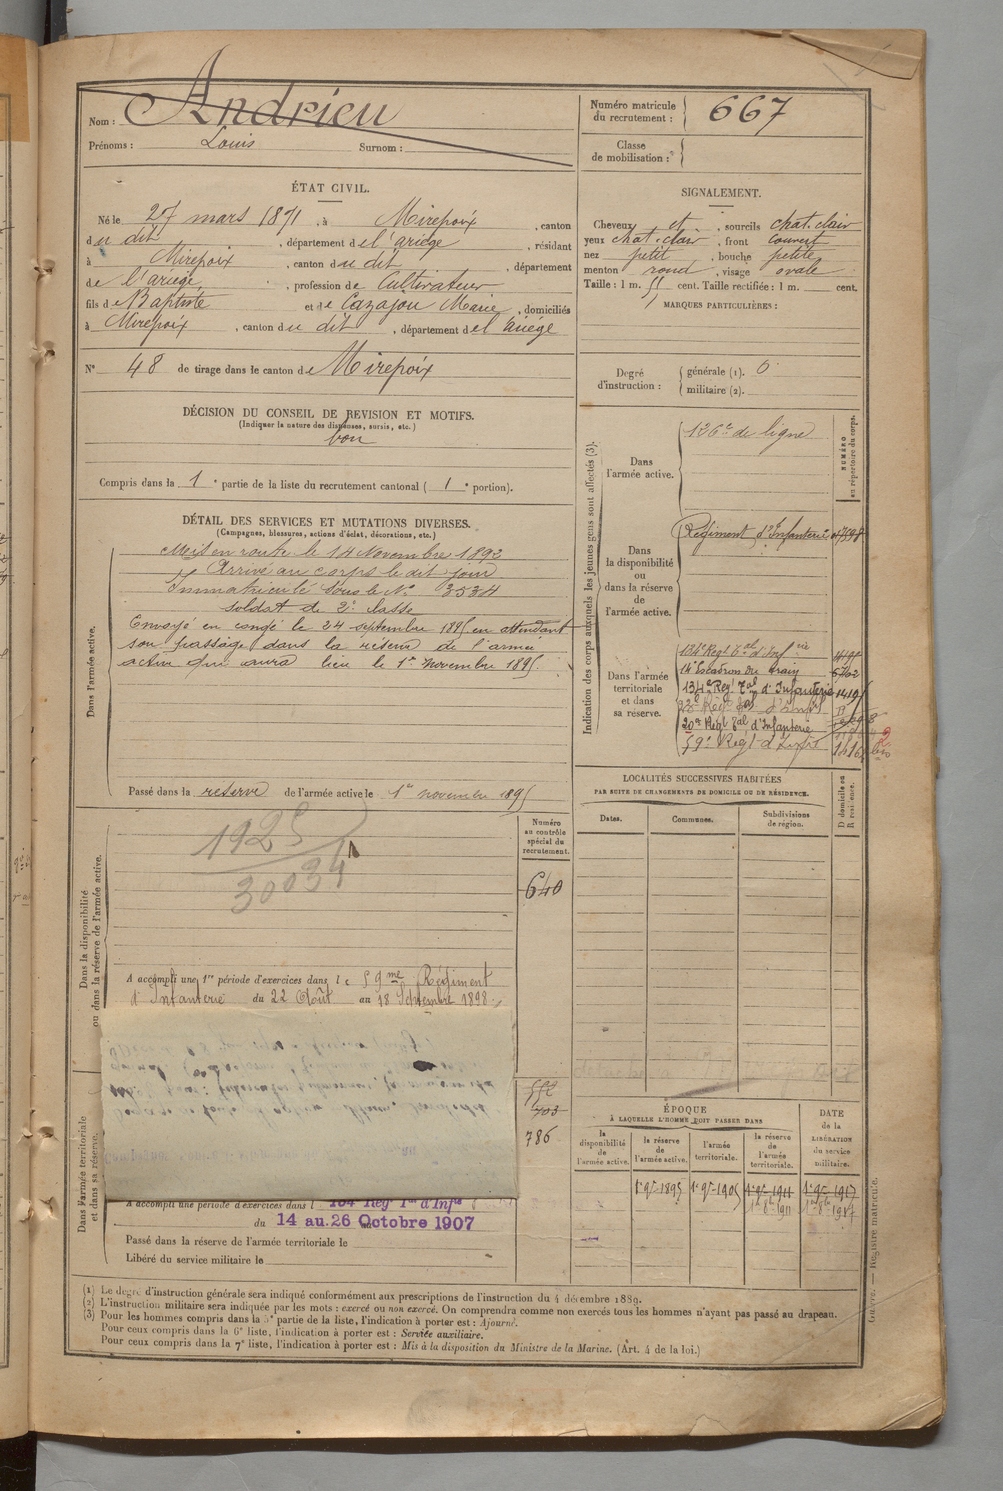 Nom : Andrieu
Prénoms : Louis Surnom :
Numéro matricule du recrutement : 667
Classe de mobilisation :
ÉTAT CIVIL.
Né le 27 mars 1871, à Mirepoix, canton
du dit, département de l'ariège, résidant
à Mirepoix, canton du dit, département
de l'ariège, profession de Cultivateur
fils de Baptiste et de Cazajou Marie, domiciliés
à Mirepoix, canton du dit, département de l'ariége
N° 48 de tirage dans le canton de Mirepoix
SIGNALEMENT.
Cheveux et, sourcils chat. clair
yeux chat. clair, front couvert
nez petit, bouche petite
menton rond, visage ovale
Taille : 1 m. 55 cent. Taille rectifiée : 1 m. cent.
MARQUES PARTICULIÈRES :
Degré d'instruction : générale (1). 0
militaire (2).
DÉCISION DU CONSEIL DE REVISION ET MOTIFS.
(Indiquer la nature des dispenses, sursis, etc.)
bon
Compris dans la 1e partie de la liste du recrutement cantonal (1e portion).
DÉTAIL DES SERVICES ET MUTATIONS DIVERSES.
(Campagnes, blessures, actions d'éclat, décorations, etc.)
Dans l'armée active.
Mis en route le 14 Novembre 1892
Arrivé au corps le dit jour
Immatriculé sous le N° 3534
soldat de 2e classe
Envoyé en congé le 24 septembre 1895 en attendant
son passage dans la réserve de l'armée
active qui aura lieu le 1er novembre 1895.
Passé dans la réserve de l'armée active le 1er novembre 1895
Indication des corps auxquels les jeunes gens sont affectés (3).
NUMÉRO au répertoire du corps.
Dans l'armée active.
126e de ligne
Dans la disponibilité ou dans la réserve de l'armée active.
Régiment d'Infanterie
Dans l'armée territoriale et dans sa réserve.
134e Régt Tal d'Infrie
14e Escadron du train
134e Regt Tal d'Infanterie 1419
20e Régt Tal d'Infanterie
59e Régt d'Infrie
LOCALITÉS SUCCESSIVES HABITÉES
PAR SUITE DE CHANGEMENTS DE DOMICILE OU DE RÉSIDENCE.
Dates. Communes. Subdivisions de région. D domicile ou R résidence.
Dans la disponibilité ou dans la réserve de l'armée active.
1925
30034
Numéro au contrôle spécial du recrutement.
640
A accompli une 1re période d'exercices dans le 59me Régiment
d'Infanterie du 22 Août au 18 Septembre 1898.
Dans l'armée territoriale et dans sa réserve.
552
703
786
A accompli une période d'exercices dans l 134 Reg Tal d'Infie
du 14 au 26 Octobre 1907
Passé dans la réserve de l'armée territoriale le
Libéré du service militaire le
ÉPOQUE
À LAQUELLE L'HOMME DOIT PASSER DANS
la disponibilité de l'armée active.
la réserve de l'armée active.
l'armée territoriale.
la réserve de l'armée territoriale.
DATE de la LIBÉRATION du service militaire.
1er 9re 1895 1er 9re 1905 1er 9re 1911 1er 9re 1917
(1) Le degré d'instruction générale sera indiqué conformément aux prescriptions de l'instruction du 4 décembre 1889.
(2) L'instruction militaire sera indiquée par les mots : exercé ou non exercé. On comprendra comme non exercés tous les hommes n'ayant pas passé au drapeau.
(3) Pour les hommes compris dans la 5e partie de la liste, l'indication à porter est : Ajourné.
Pour ceux compris dans la 6e liste, l'indication à porter est : Service auxiliaire.
Pour ceux compris dans la 7e liste, l'indication à porter est : Mis à la disposition du Ministre de la Marine. (Art. 4 de la loi.)
Registre matricule.